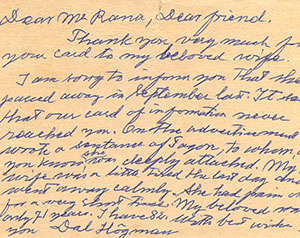 Dear Mr Rana, Dear friend.
Thank you very much for
your card to my beloved wife.
I am sorry to inform you that she
passed away in September last. It
that our card of information never
reached you. On the advertisement
wrote a sentance of Tagore, to whom
you know she was deeply attached. My
wife was a little tired the last day and
went away calmly. She had pain
for a very short time. My beloved was
only 71 years. I have 82. With best wishes
you Dal Högman